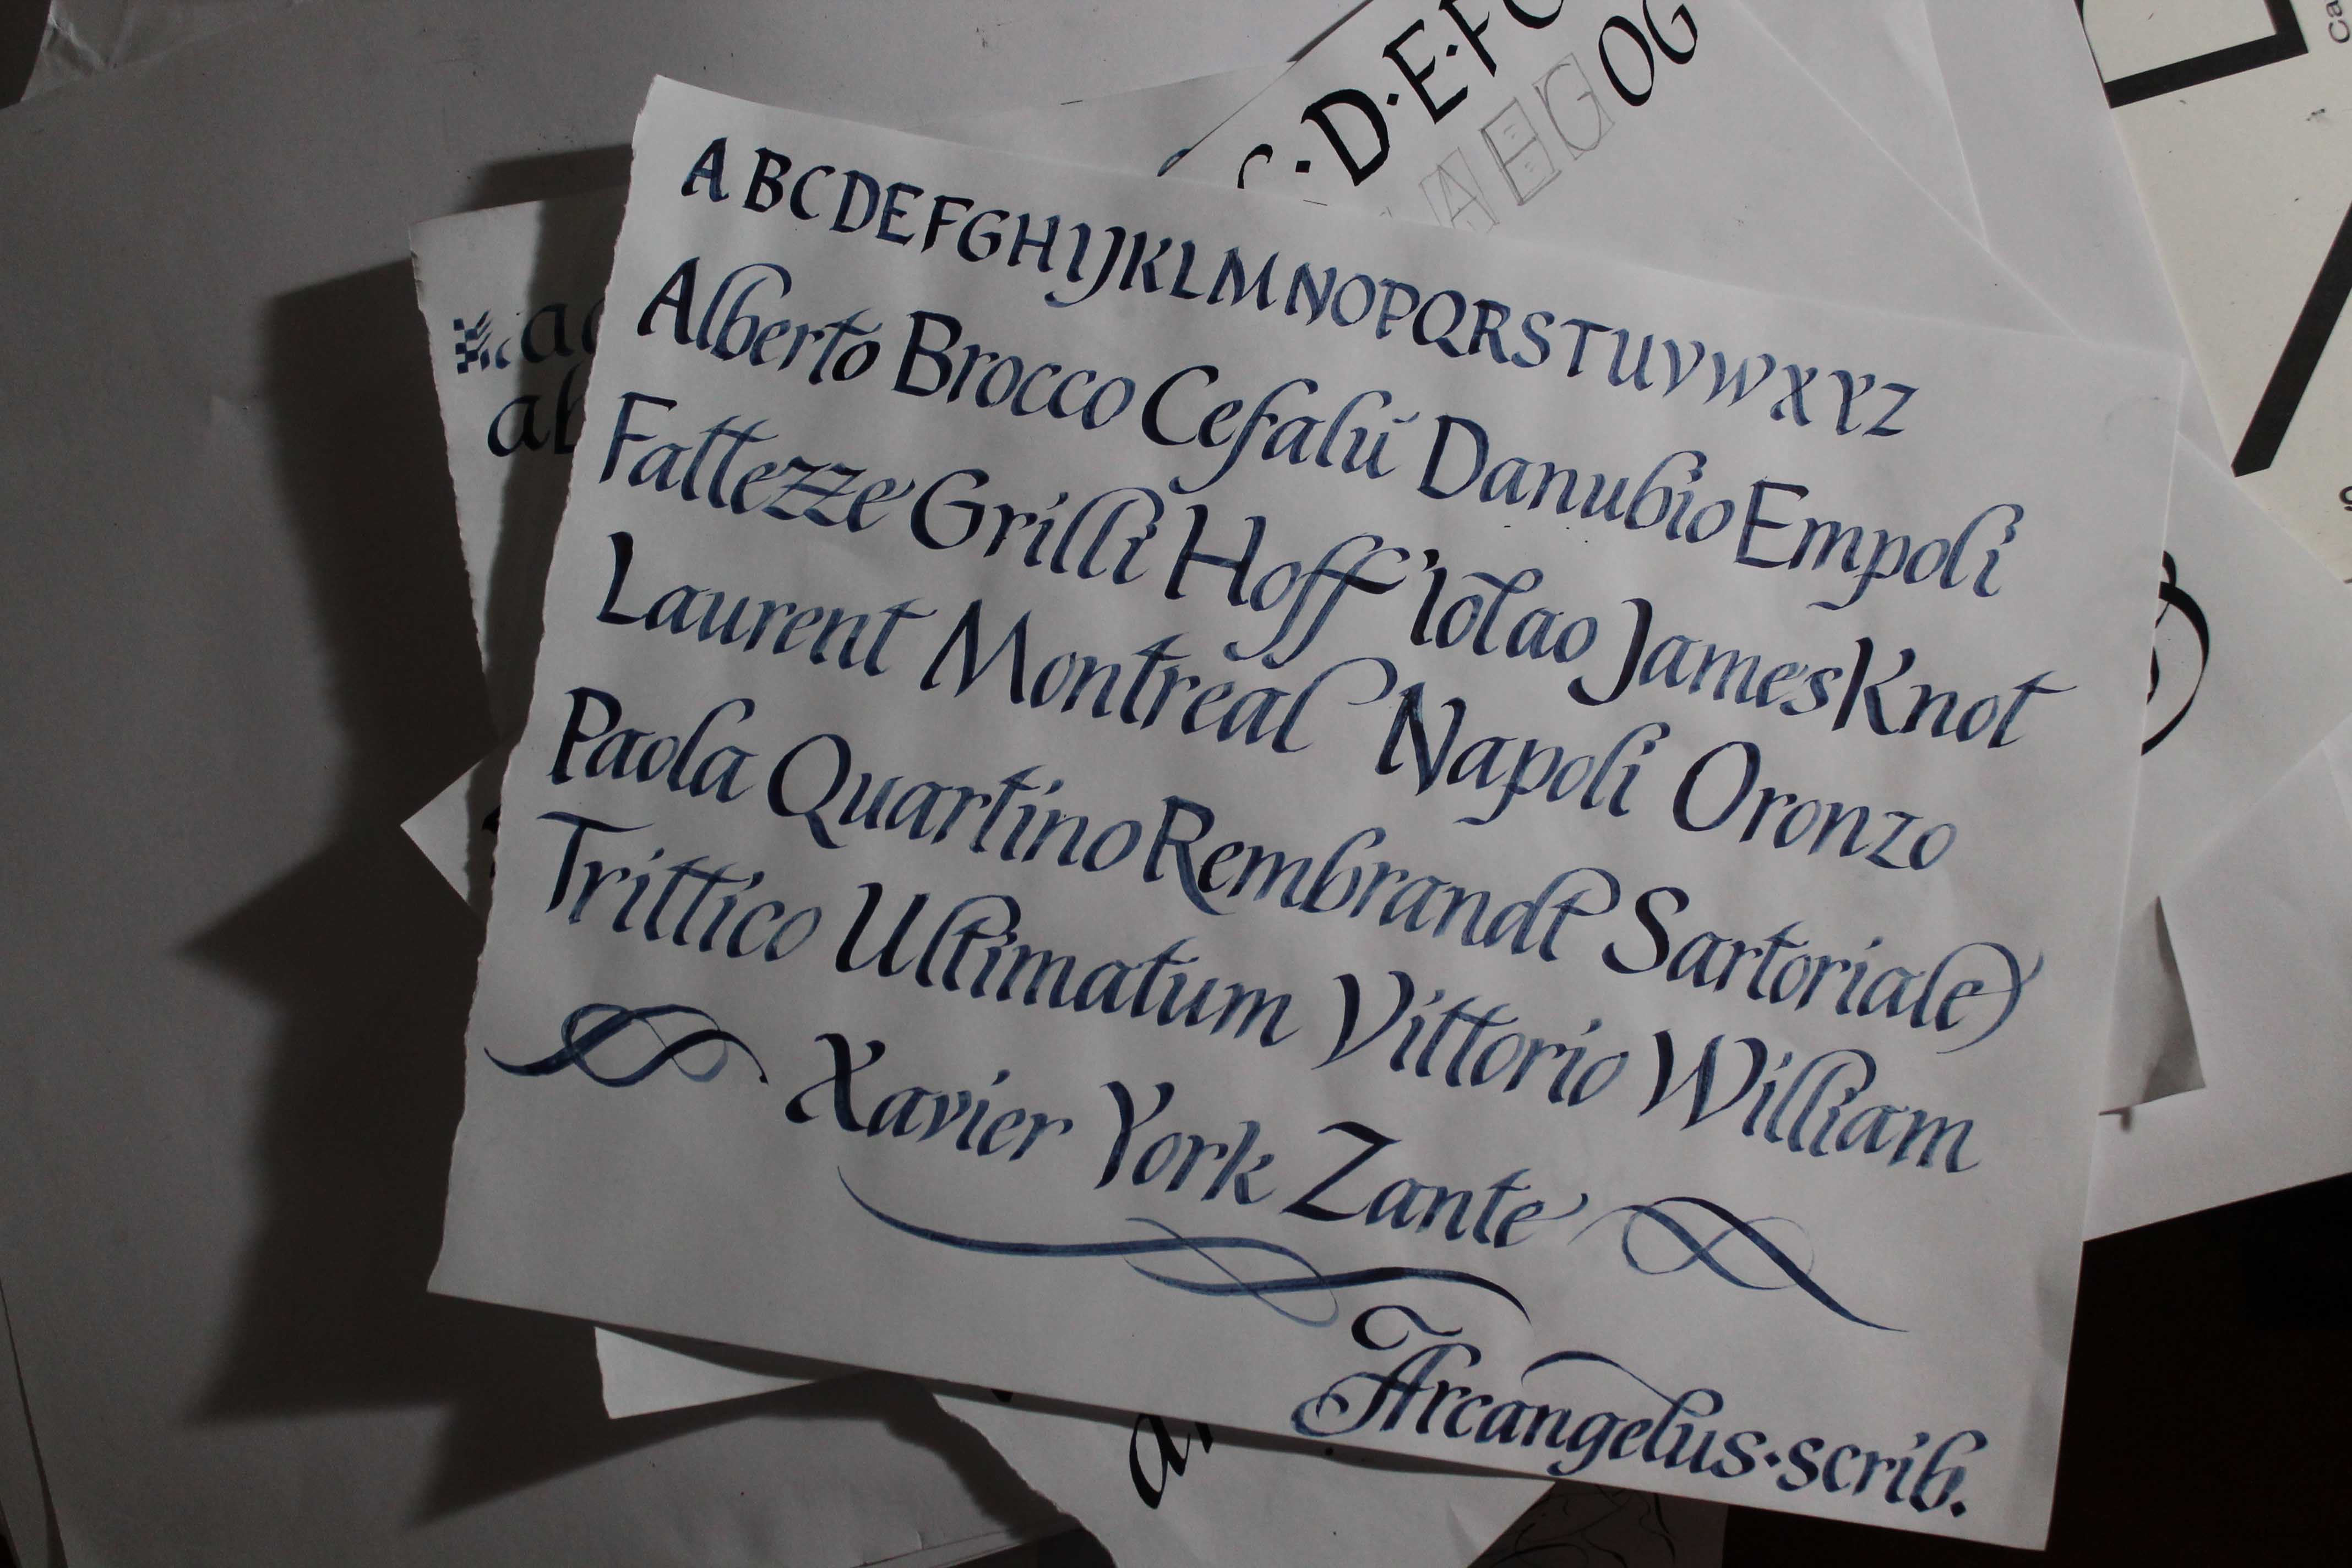 C·D·E·F
A E G O G
A B C D E F G H I J K L M N O P Q R S T U V W X Y Z
Alberto Brocco Cefalù Danubio Empoli
Fattezze Grilli Hoff Iolao James Knot
Laurent Montreal Napoli Oronzo
Paola Quartino Rembrandt Sartoriale
Trittico Ultimatum Vittorio William
Xavier York Zante
Arcangelus·scrib.